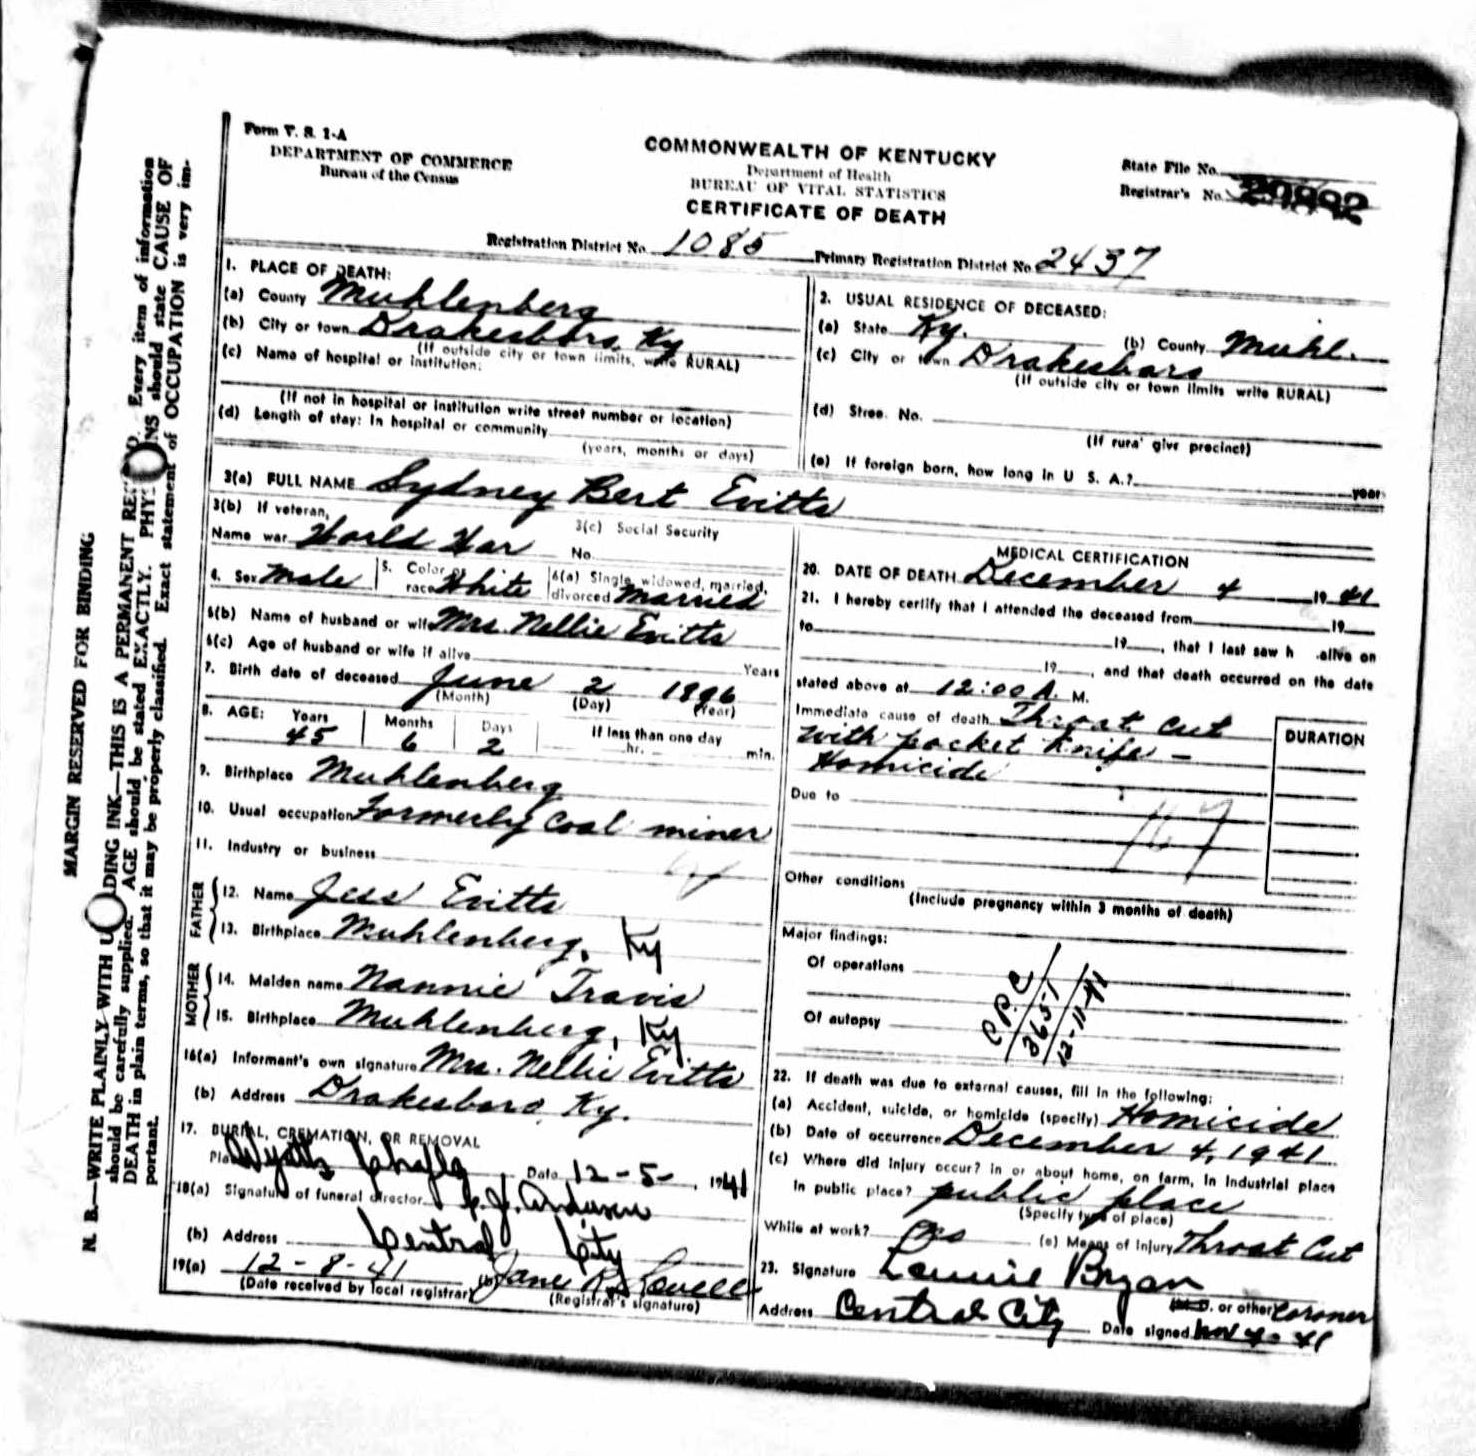 Form V. S. 1-A
DEPARTMENT OF COMMERCE
Bureau of the Census
COMMONWEALTH OF KENTUCKY
Department of Health
BUREAU OF VITAL STATISTICS
CERTIFICATE OF DEATH
State File No.
Registrar's No.
Registration District No. 1085 Primary Registration District No. 2437
MARGIN RESERVED FOR BINDING
N. B.—WRITE PLAINLY WITH U DING INK—THIS IS A PERMANENT RE D. Every item of information
should be carefully supplied. AGE should be stated EXACTLY. PHY NS should state CAUSE OF
DEATH in plain terms, so that it may be properly classified. Exact statement of OCCUPATION is very im-
portant.
1. PLACE OF DEATH:
(a) County Muhlenberg
(b) City or town Drakesboro, Ky
(If outside city or town limits, write RURAL)
(c) Name of hospital or institution:
(If not in hospital or institution write street number or location)
(d) Length of stay: In hospital or community
(years, months or days)
2. USUAL RESIDENCE OF DECEASED:
(a) State Ky. (b) County Muhl.
(c) City or town Drakesboro
(If outside city or town limits write RURAL)
(d) Stree. No.
(If rura' give precinct)
(e) If foreign born, how long in U S. A.? year
3(a) FULL NAME Sydney Bert Evitts
3(b) If veteran,
Name war World War
3(c) Social Security
No.
4. Sex Male 5. Color or race White 6(a) Single, widowed, married, divorced Married
6(b) Name of husband or wife Mrs. Nellie Evitts
6(c) Age of husband or wife if alive Years
7. Birth date of deceased June 2 1896
(Month) (Day) (Year)
8. AGE: Years 45 Months 6 Days 2 If less than one day
hr. min.
9. Birthplace Muhlenberg
10. Usual occupation Formerly Coal miner
11. Industry or business
FATHER
12. Name Jess Evitts
13. Birthplace Muhlenberg, Ky
MOTHER
14. Maiden name Nannie Travis
15. Birthplace Muhlenberg, Ky
16(a) Informant's own signature Mrs. Nellie Evitts
(b) Address Drakesboro, Ky.
17. BURIAL, CREMATION, OR REMOVAL
Place Wyatts Date 12-5-, 1941
18(a) Signature of funeral director
(b) Address Central City
19(a) 12-8-41 (b) Jane R. Lovell
(Date received by local registrar) (Registrar's signature)
MEDICAL CERTIFICATION
20. DATE OF DEATH December 4 19 41
21. I hereby certify that I attended the deceased from 19
to 19 , that I last saw h alive on
19 , and that death occurred on the date
stated above at 12:00 A. M.
Immediate cause of death Throat cut
with pocket knife —
Homicide
DURATION
Due to
Other conditions
(Include pregnancy within 3 months of death)
Major findings:
Of operations
Of autopsy
C.P.C
365-1
12-11-41
22. If death was due to external causes, fill in the following:
(a) Accident, suicide, or homicide (specify) Homicide
(b) Date of occurrence December 4, 1941
(c) Where did injury occur? in or about home, on farm, in industrial place
in public place? public place
(Specify type of place)
While at work? no (e) Means of injury Throat Cut
23. Signature Lennie Bryan
M.D. or other Coroner
Address Central City Date signed